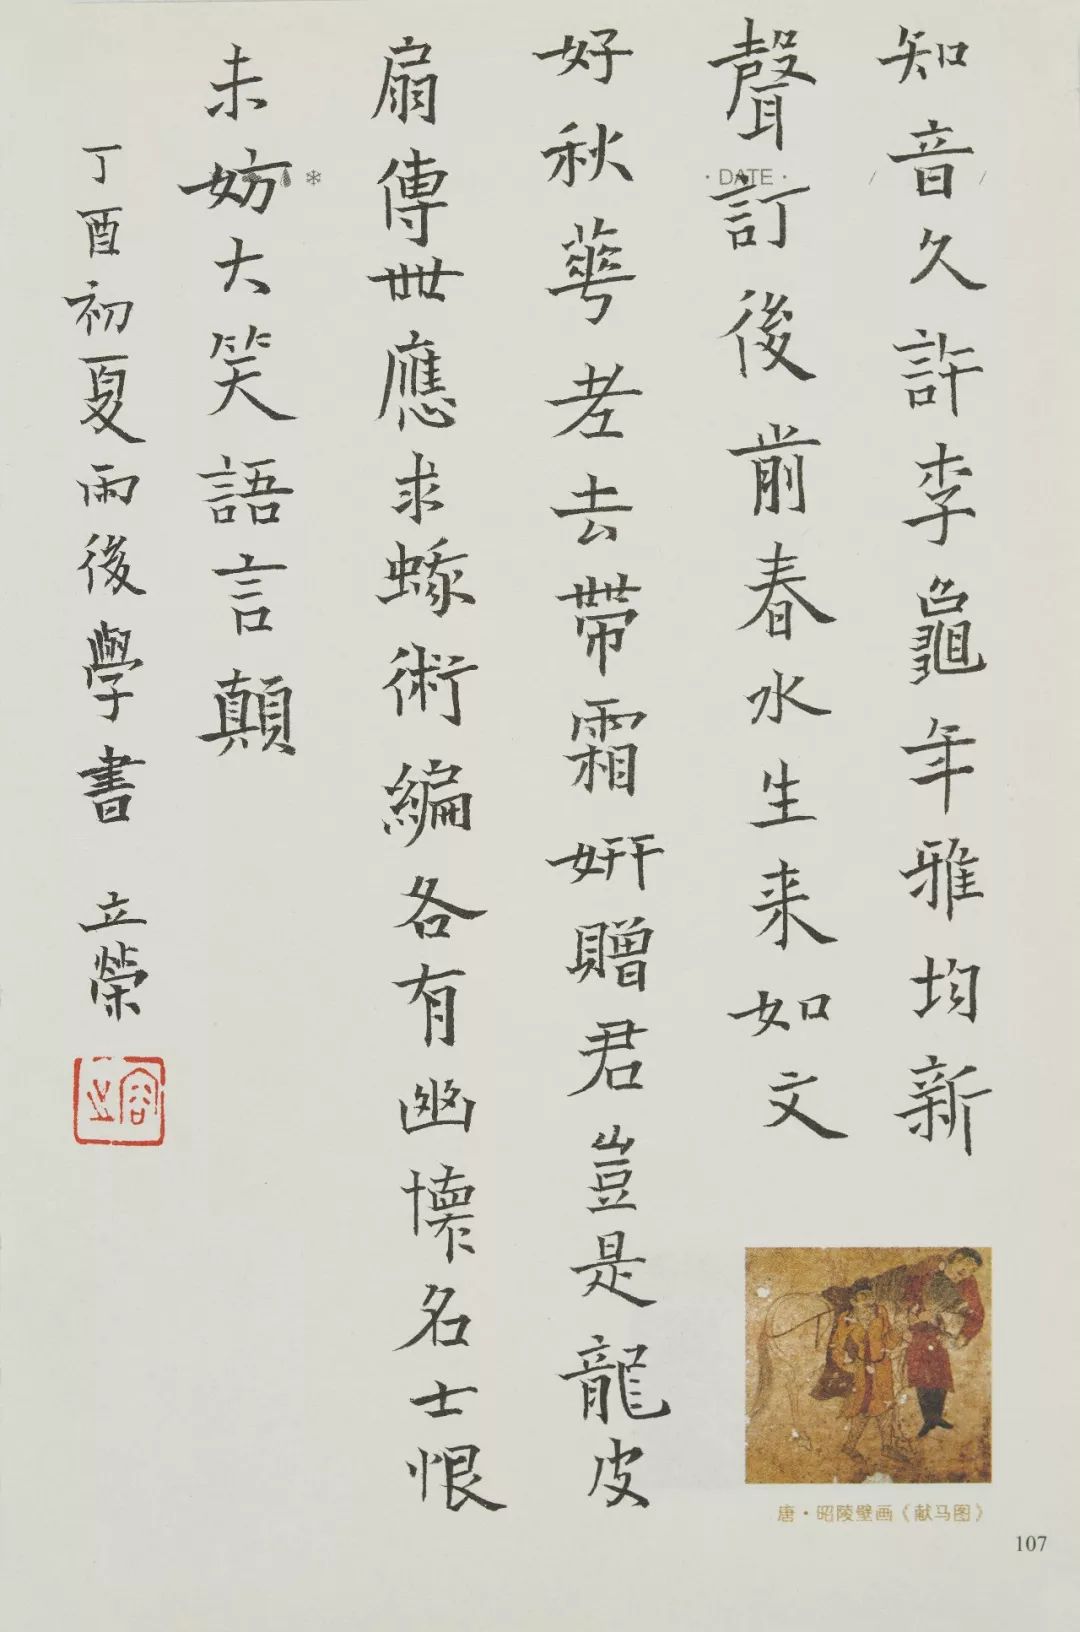 知音久許李龜年雅均新
聲訂後前春水生来如文
好秋華老去帶霜妍贈君豈是龍皮
扇傳世應求蝝術編各有幽懷名士恨
未妨大笑語言顛
丁酉初夏雨後學書 立榮
· DATE · / /
唐·昭陵壁画《献马图》
107